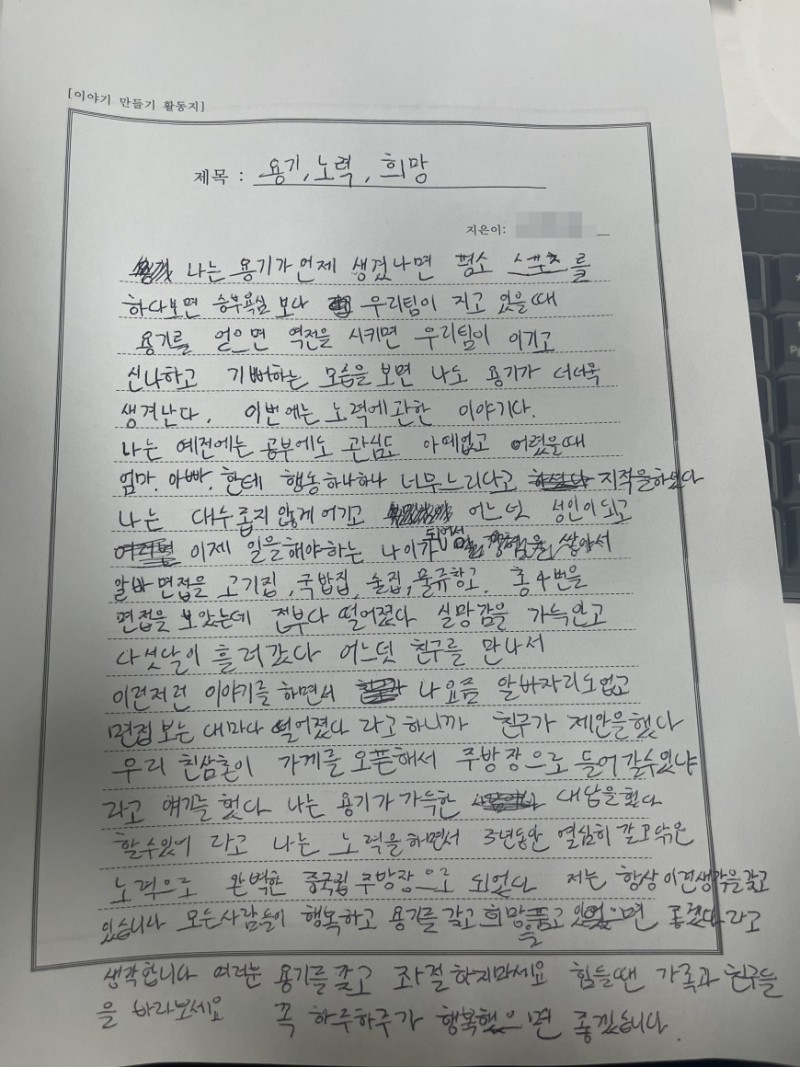 [이야기 만들기 활동지]
제목 : 용기, 노력, 희망
지은이:
나는 용기가 언제 생겼냐면 평소 스포츠를
하다보면 승부욕심 보다 우리팀이 지고 있을때
용기를 얻으면 역전을 시키면 우리팀이 이기고
신나하고 기뻐하는 모습을 보면 나도 용기가 더더욱
생겨난다. 이번에는 노력에 관한 이야기다.
나는 예전에는 공부에도 관심도 아에없고 어렸을때
엄마, 아빠, 한테 행동하나하나 너무느리다고 지적을하셨다
나는 대수롭지 않게 여기고 어느덧 성인이되고
이제 일을해야하는 나이가 되어서 경험을 쌓아서
알바면접을 고기집, 국밥집, 술집, 물류창고, 총 4번을
면접을 보았는데 전부다 떨어졌다 실망감을 가득안고
다섯달이 흘러갔다 어느덧 친구를 만나서
이런저런 이야기를 하면서 나요즘 알바자리도없고
면접보는 대마다 떨어졌다 라고하니까 친구가 제안을했다
우리 친삼촌이 가게를 오픈해서 주방장으로 들어갈수있냐
라고 얘기를 했다 나는 용기가 가득한 대답을 했다
할수있어 라고 나는 노력을 하면서 3년동안 열심히 갈고닦은
노력으로 완벽한 중국집 주방장으로 되었다 저는 항상 이런생각을갖고
있습니다 모든사람들이 행복하고 용기를 갖고 희망을 품고 있었으면 좋겠다라고
생각합니다 여러분 용기를갖고 좌절하지마세요 힘들땐 가족과 친구들
을 바라보세요 꼭 하루하루가 행복했으면 좋겠습니다.